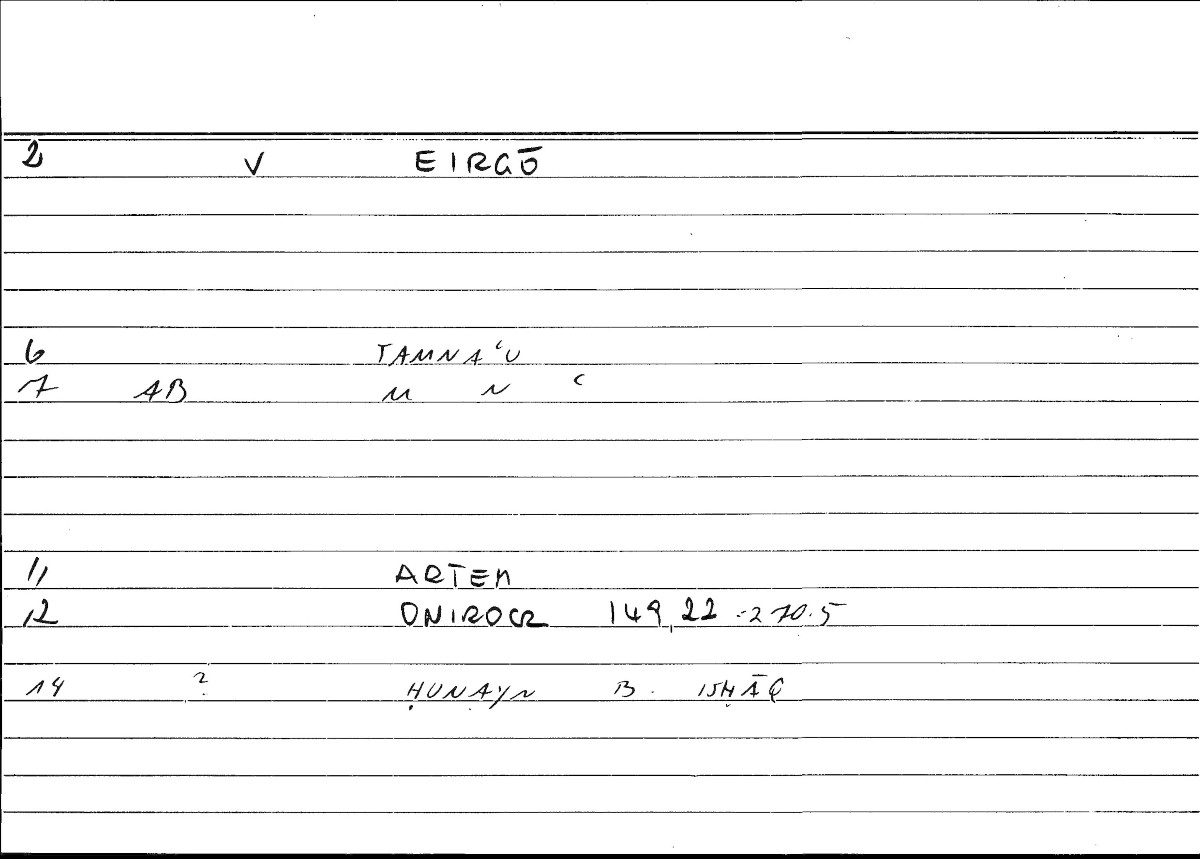 2 V EIRGŌ
6 TAMNAʿU
7 AB M N ʿ
11 ARTEM
12 ONIROCR 149,22 - 270.5
14 ? ḤUNAYN B. ISḤĀQ